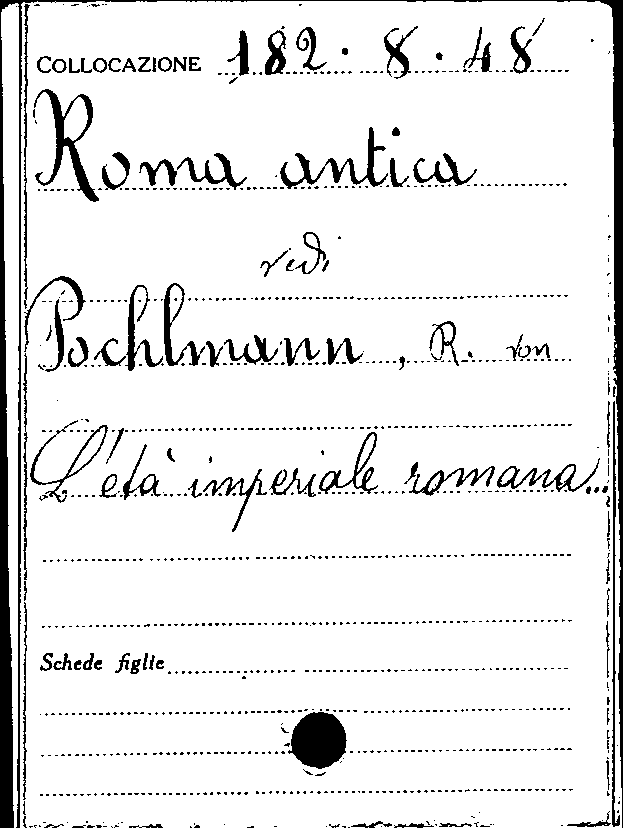 COLLOCAZIONE 182.8.48
Roma antica
vedi
Pochlmann, R. von
L'età imperiale romana...
Schede figlie